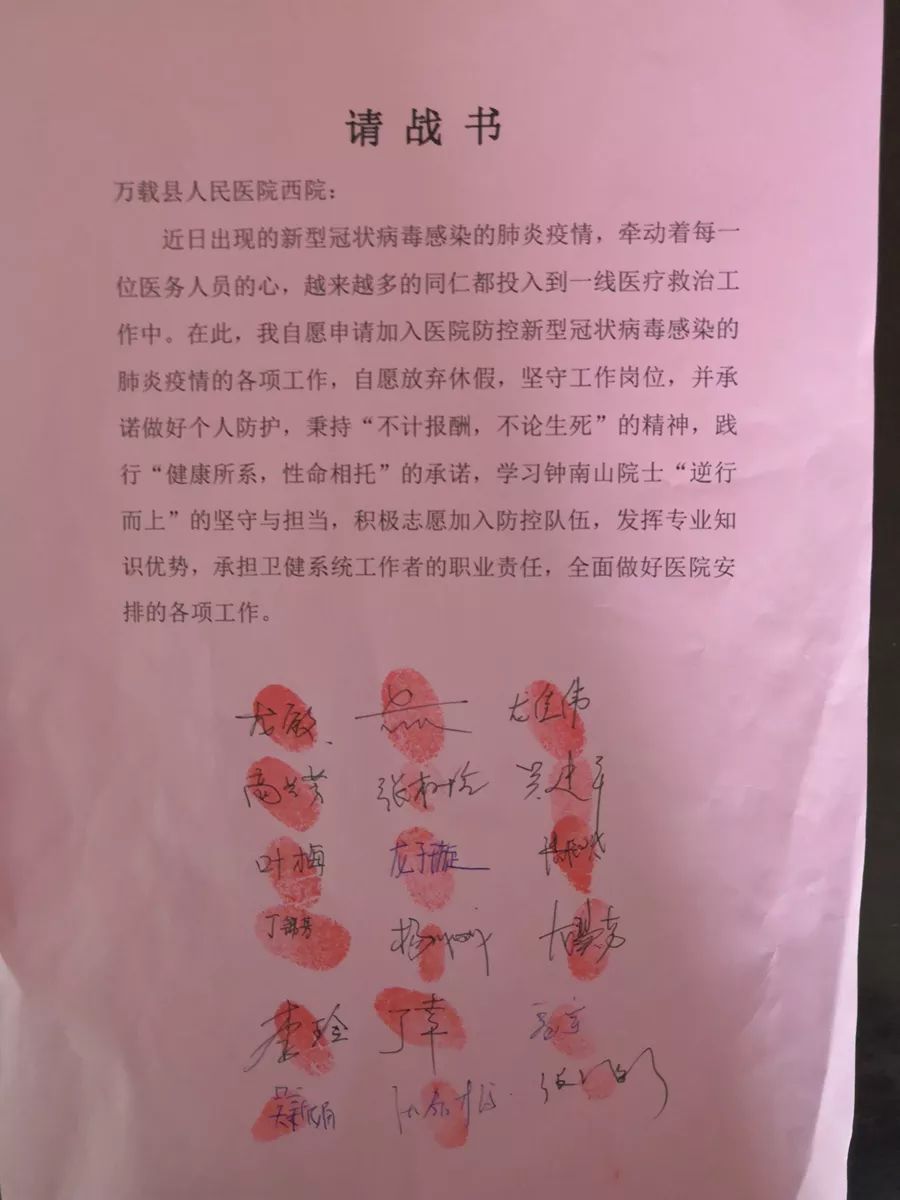 请战书
万载县人民医院西院：
近日出现的新型冠状病毒感染的肺炎疫情，牵动着每一
位医务人员的心，越来越多的同仁都投入到一线医疗救治工
作中。在此，我自愿申请加入医院防控新型冠状病毒感染的
肺炎疫情的各项工作，自愿放弃休假，坚守工作岗位，并承
诺做好个人防护，秉持“不计报酬，不论生死”的精神，践
行“健康所系，性命相托”的承诺，学习钟南山院士“逆行
而上”的坚守与担当，积极志愿加入防控队伍，发挥专业知
识优势，承担卫健系统工作者的职业责任，全面做好医院安
排的各项工作。
龙敏 尤佳伟
高兰芳 吴建军
叶梅 龙子璇
丁锦芳
李玲 丁幸